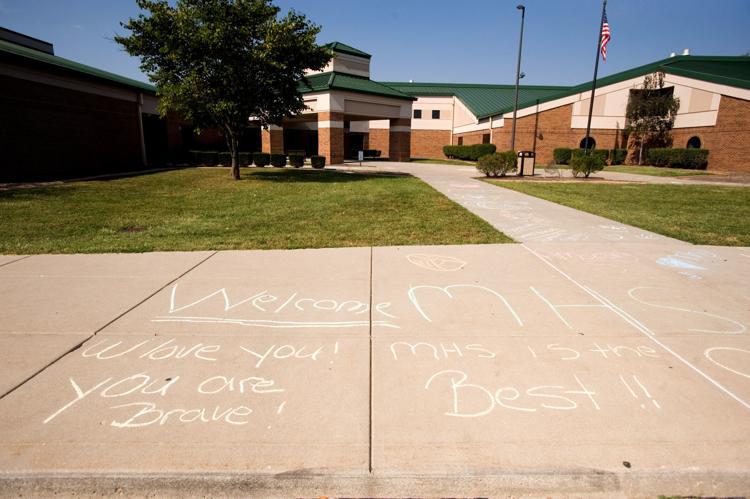 Welcome MHS
We love you! MHS is the
you are Best!!
Brave!